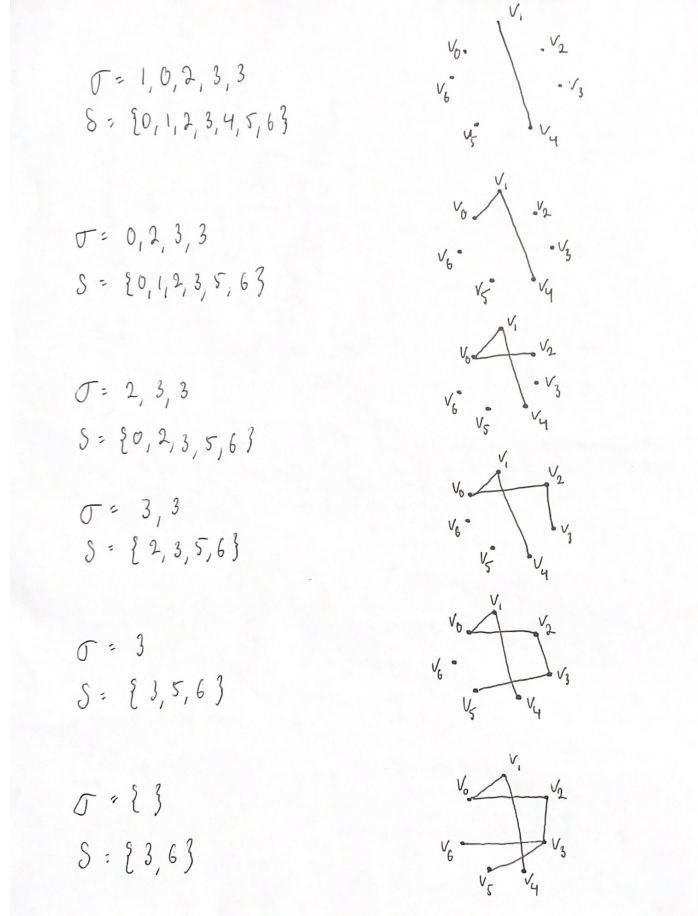 σ = 1, 0, 2, 3, 3
S = {0, 1, 2, 3, 4, 5, 6}
V₁
V₀ V₂
V₆ V₃
V₅ V₄
σ = 0, 2, 3, 3
S = {0, 1, 2, 3, 5, 6}
V₁
V₀ V₂
V₆ V₃
V₅ V₄
σ = 2, 3, 3
S = {0, 2, 3, 5, 6}
V₁
V₀ V₂
V₆ V₃
V₅ V₄
σ = 3, 3
S = {2, 3, 5, 6}
V₁
V₀ V₂
V₆ V₃
V₅ V₄
σ = 3
S = {3, 5, 6}
V₁
V₀ V₂
V₆ V₃
V₅ V₄
σ = { }
S = {3, 6}
V₁
V₀ V₂
V₆ V₃
V₅ V₄